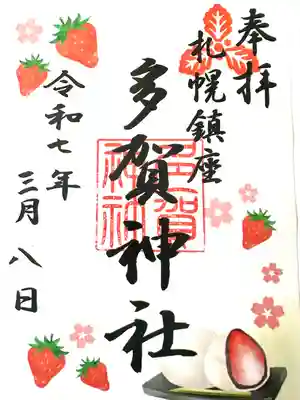 奉拝
札幌鎮座
多賀神社
令和七年
三月八日